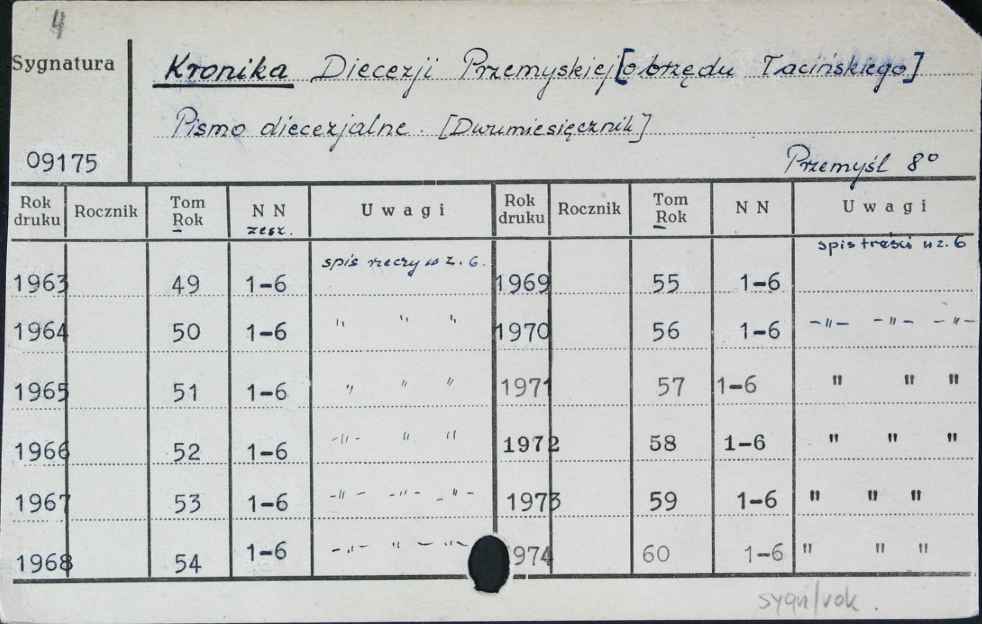 4
Sygnatura
Kronika Diecezji Przemyskiej [obrzędu Łacińskiego]
Pismo diecezjalne. [Dwumiesięcznik]
09175
Przemyśl 8°
Rok druku Rocznik Tom Rok N N zesz. Uwagi Rok druku Rocznik Tom Rok N N Uwagi
1963 49 1-6 spis rzeczy w z. 6. 1969 55 1-6 spis treści w z. 6
1964 50 1-6 " " " 1970 56 1-6 -"- -"- -"-
1965 51 1-6 " " " 1971 57 1-6 " " "
1966 52 1-6 -"- " " 1972 58 1-6 " " "
1967 53 1-6 -"- -"- -"- 1973 59 1-6 " " "
1968 54 1-6 -"- " -"- 974 60 1-6 " " "
sygn/rok.